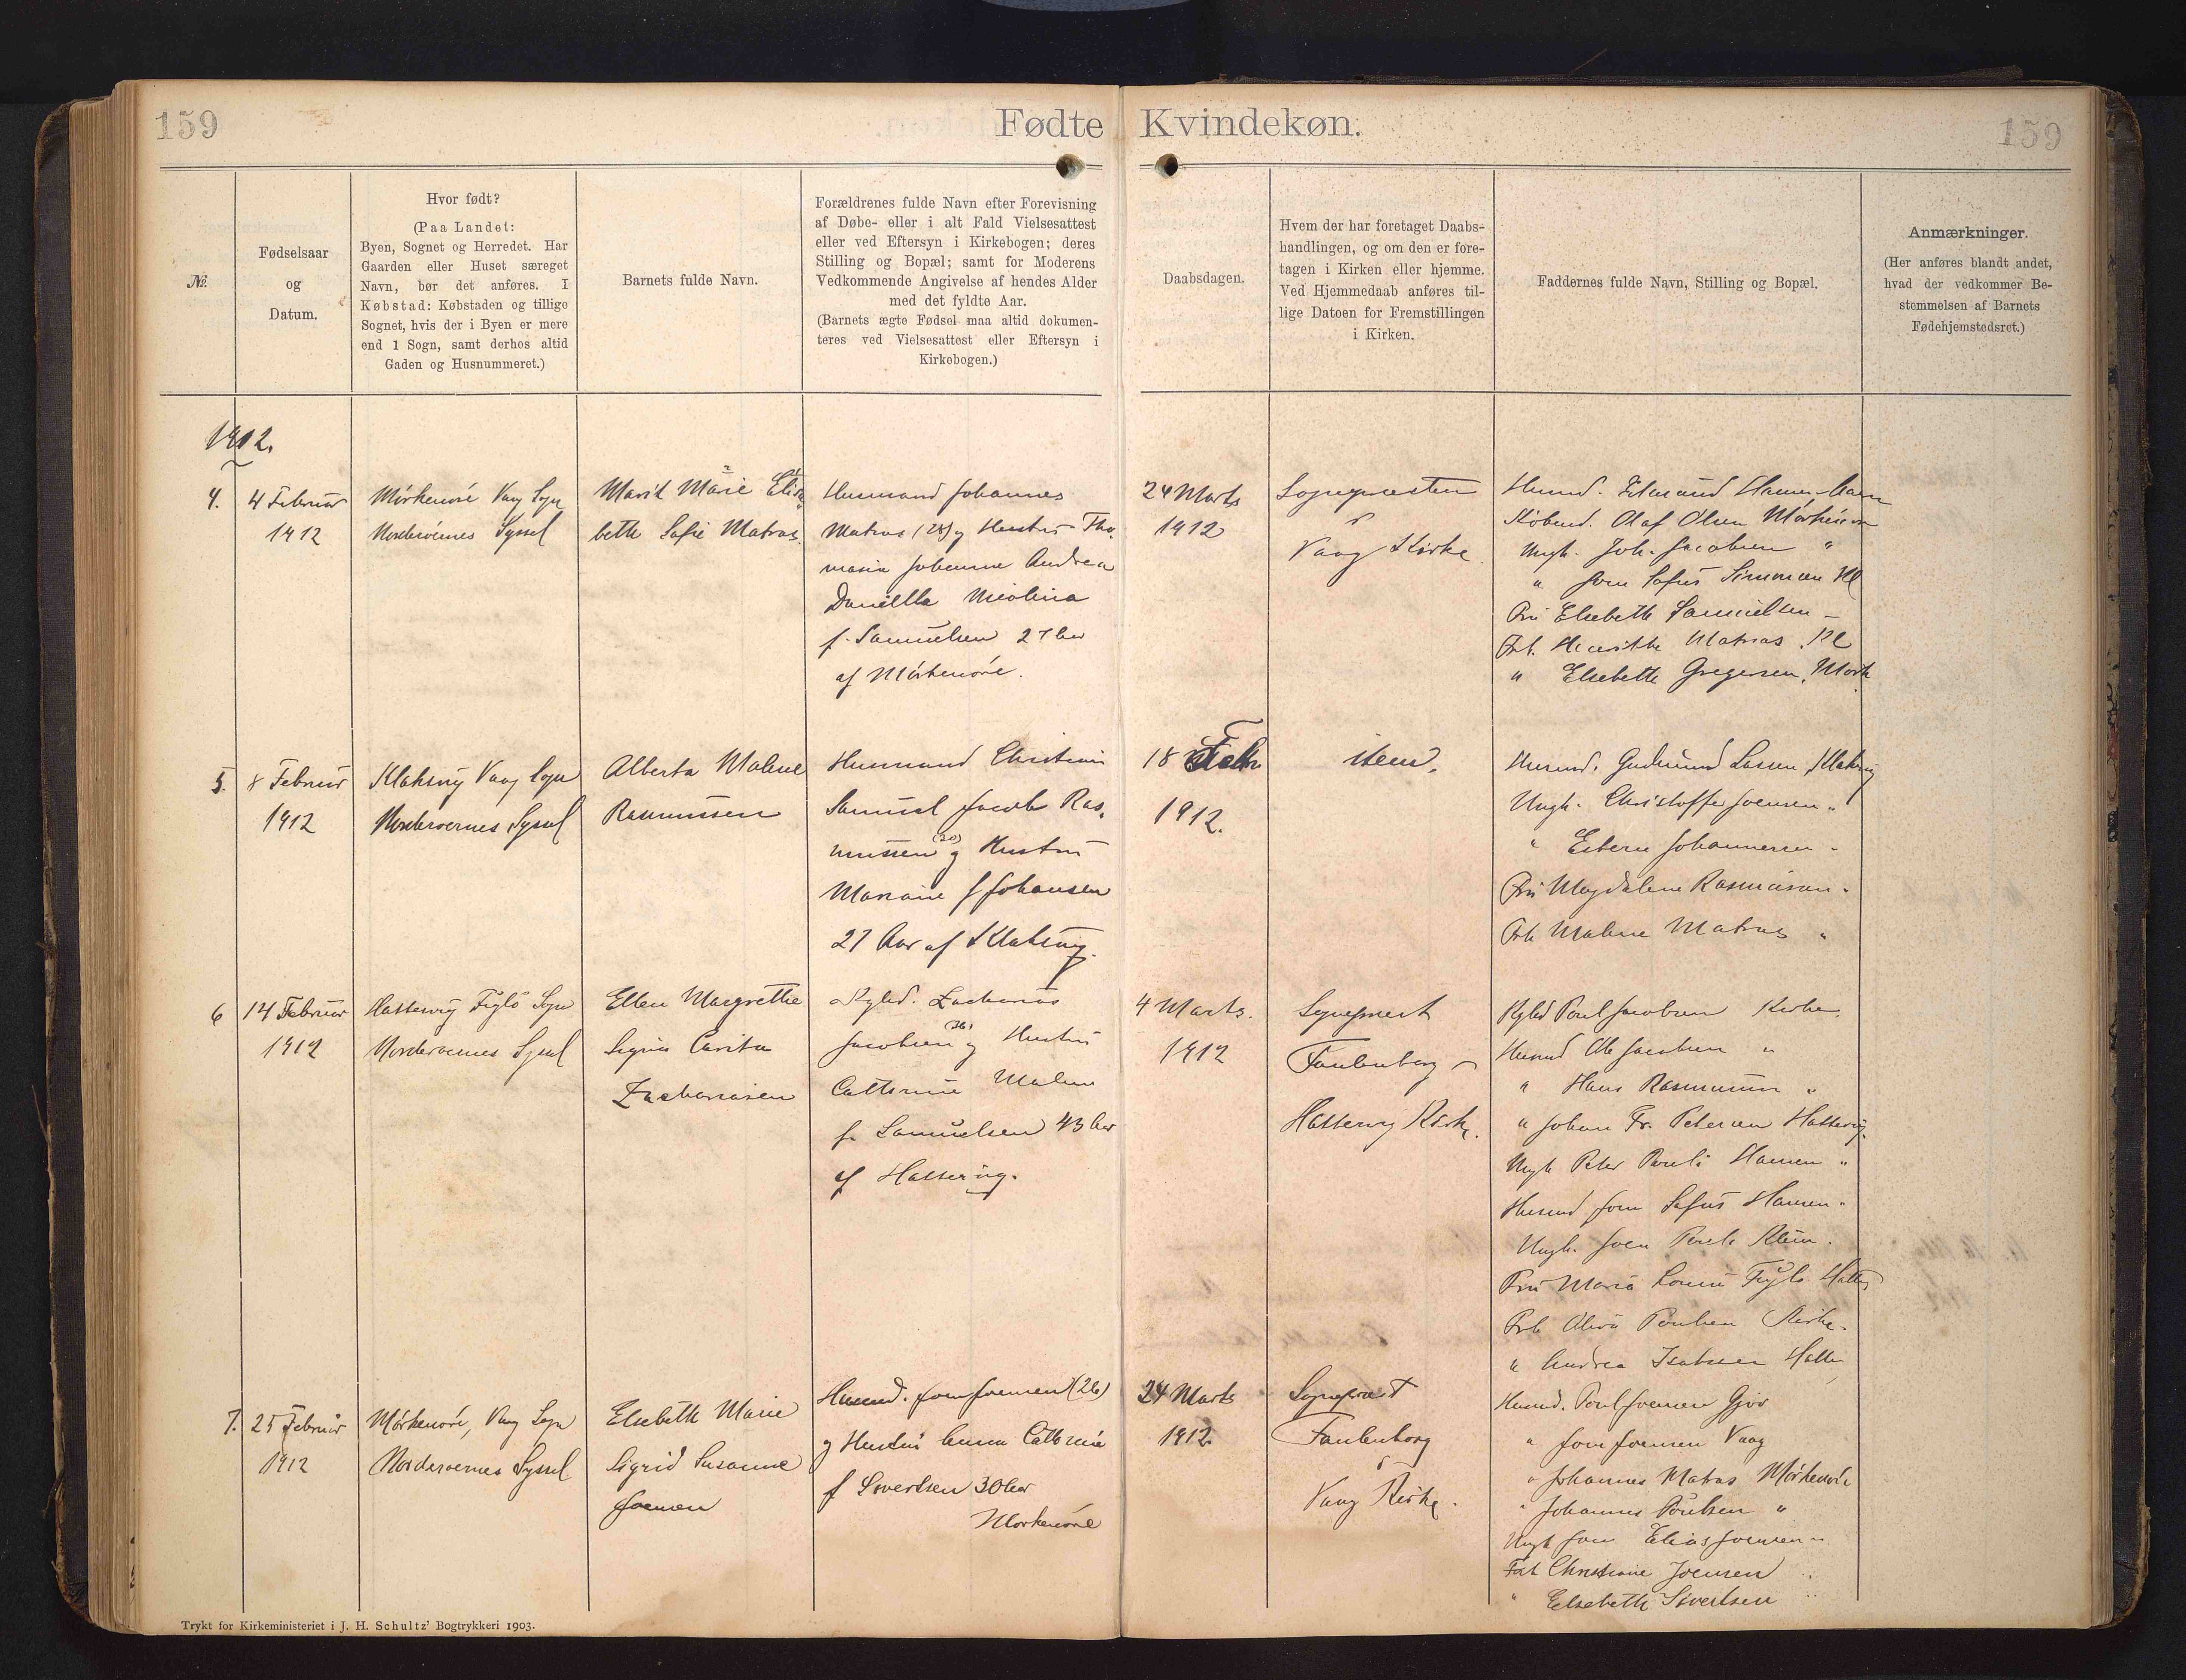 159
Fødte
Kvindekøn.
159
№
Fødselsaar
og
Datum.
Hvor født?
(Paa Landet:
Byen, Sognet og Herredet. Har
Gaarden eller Huset særeget
Navn, bør det anføres. I
Købstad: Købstaden og tillige
Sognet, hvis der i Byen er mere
end 1 Sogn, samt derhos altid
Gaden og Husnummeret.)
Barnets fulde Navn.
Forældrenes fulde Navn efter Forevisning
af Døbe- eller i alt Fald Vielsesattest
eller ved Eftersyn i Kirkebogen; deres
Stilling og Bopæl; samt for Moderens
Vedkommende Angivelse af hendes Alder
med det fyldte Aar.
(Barnets ægte Fødsel maa altid dokumen-
teres ved Vielsesattest eller Eftersyn i
Kirkebogen.)
Daabsdagen.
Hvem der har foretaget Daabs-
handlingen, og om den er fore-
tagen i Kirken eller hjemme.
Ved Hjemmedaab anføres til-
lige Datoen for Fremstillingen
i Kirken.
Faddernes fulde Navn, Stilling og Bopæl.
Anmærkninger.
(Her anføres blandt andet,
hvad der vedkommer Be-
stemmelsen af Barnets
Fødehjemstedsret.)
1912.
4.
4 Februar
1912
Mørkenøre Vaag Sogn
Norderøernes Syssel
Marit Marie Elisa
beth Sofie Matras.
Husmand Johannes
Matras (28) og Hustru Tho-
masia Johanne Andrea
Daniella Nicolina
f. Samuelsen 27 Aar
af Mørkenøre.
24 Marts
1912
Sognepræsten
i
Vaag Kirke
Husmd.
Købmd. Olaf Olsen Mørkenøre
Ungk. Joh. Jacobsen "
" Joen Sofus Simonsen Kl
Fru Elsebeth Samuelsen –
Frk. Henrikke Matras. Kl
" Elsebeth Gregersen, Mørk
5.
8 Februar
1912
Klaksvig Vaag Sogn
Norderøernes Syssel
Alberta Malene
Rasmussen
Husmand Christian
Samuel Jacob Ras-
mussen og Hustru
Mariane f Johansen
27 Aar af Klaksvig.
18 Febr
1912.
item.
Husmd. Gudmund Lassen, Klaksvig
Ungk. Christoffer Joensen "
" Johannesen "
Fru Magdalene Rasmussen "
Frk Malene Matras "
6
14 Februar
1912
Hattervig Fuglø Sogn
Norderøernes Syssel
Ellen Margrethe
Sigrid Carita
Zachariasen
Kglbd. Zacharias
Jacobsen og Hustru
Cathrine Malene
f. Samuelsen 43 Aar
af Hattervig.
4 Marts.
1912
Sognepræst
Fanlenborg –
Hattervig Kirke.
Kglbd Poul Jacobsen Kirke.
Husmd Ole Jacobsen "
" Hans Rasmussen "
" Johan Fr. Petersen Hattervig.
Ungk Peter Pauli Hansen "
Husmd Joen Sofus Hansen "
Ungk. Joen Klein.
Fru Maria Fuglø Hatterv
Frk Poulsen Kirke.
" Andrea Isaksen Hatte
7.
25 Februar
1912
Mørkenøre, Vaag Sogn
Norderøernes Syssel
Elsebeth Marie
Sigrid Susanne
Joensen
Husmd. Joen Joensen (26)
og Hustru Anna Cathrine
f Sivertsen 30 Aar
Mørkenøre
24 Marts
1912
Sognepræst
Fanlenborg
i
Vaag Kirke.
Husmd. Poul Joensen Gjov
" Joen Joensen Vaag
" Johannes Matras Mørkenøre
" Johannes Poulsen "
Ungk Joen Elias Joensen "
Frk Christiane Joensen "
" Elsebeth Sivertsen "
Trykt for Kirkeministeriet i J. H. Schultz' Bogtrykkeri 1903.